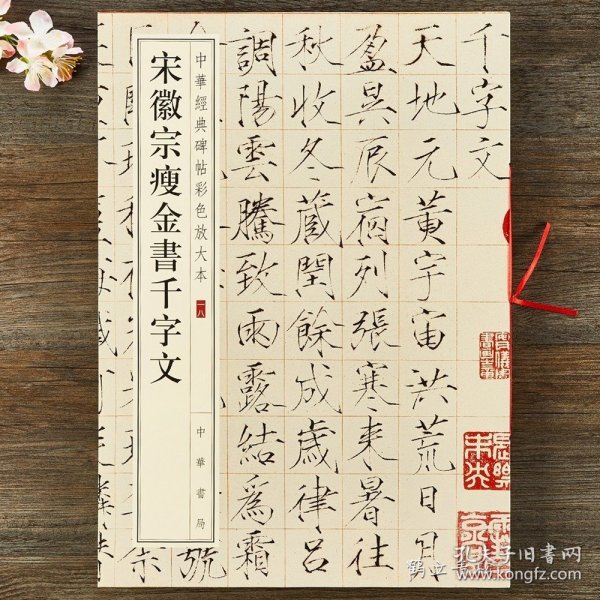 千字文
天地元黃宇宙洪荒日月
盈昃辰宿列張寒来暑往
秋收冬藏閏餘成歲律呂
調陽雲騰致雨露結爲霜
中華經典碑帖彩色放大本
一八
中華書局
宋徽宗瘦金書千字文
孔夫子旧书网
www.kongfz.com